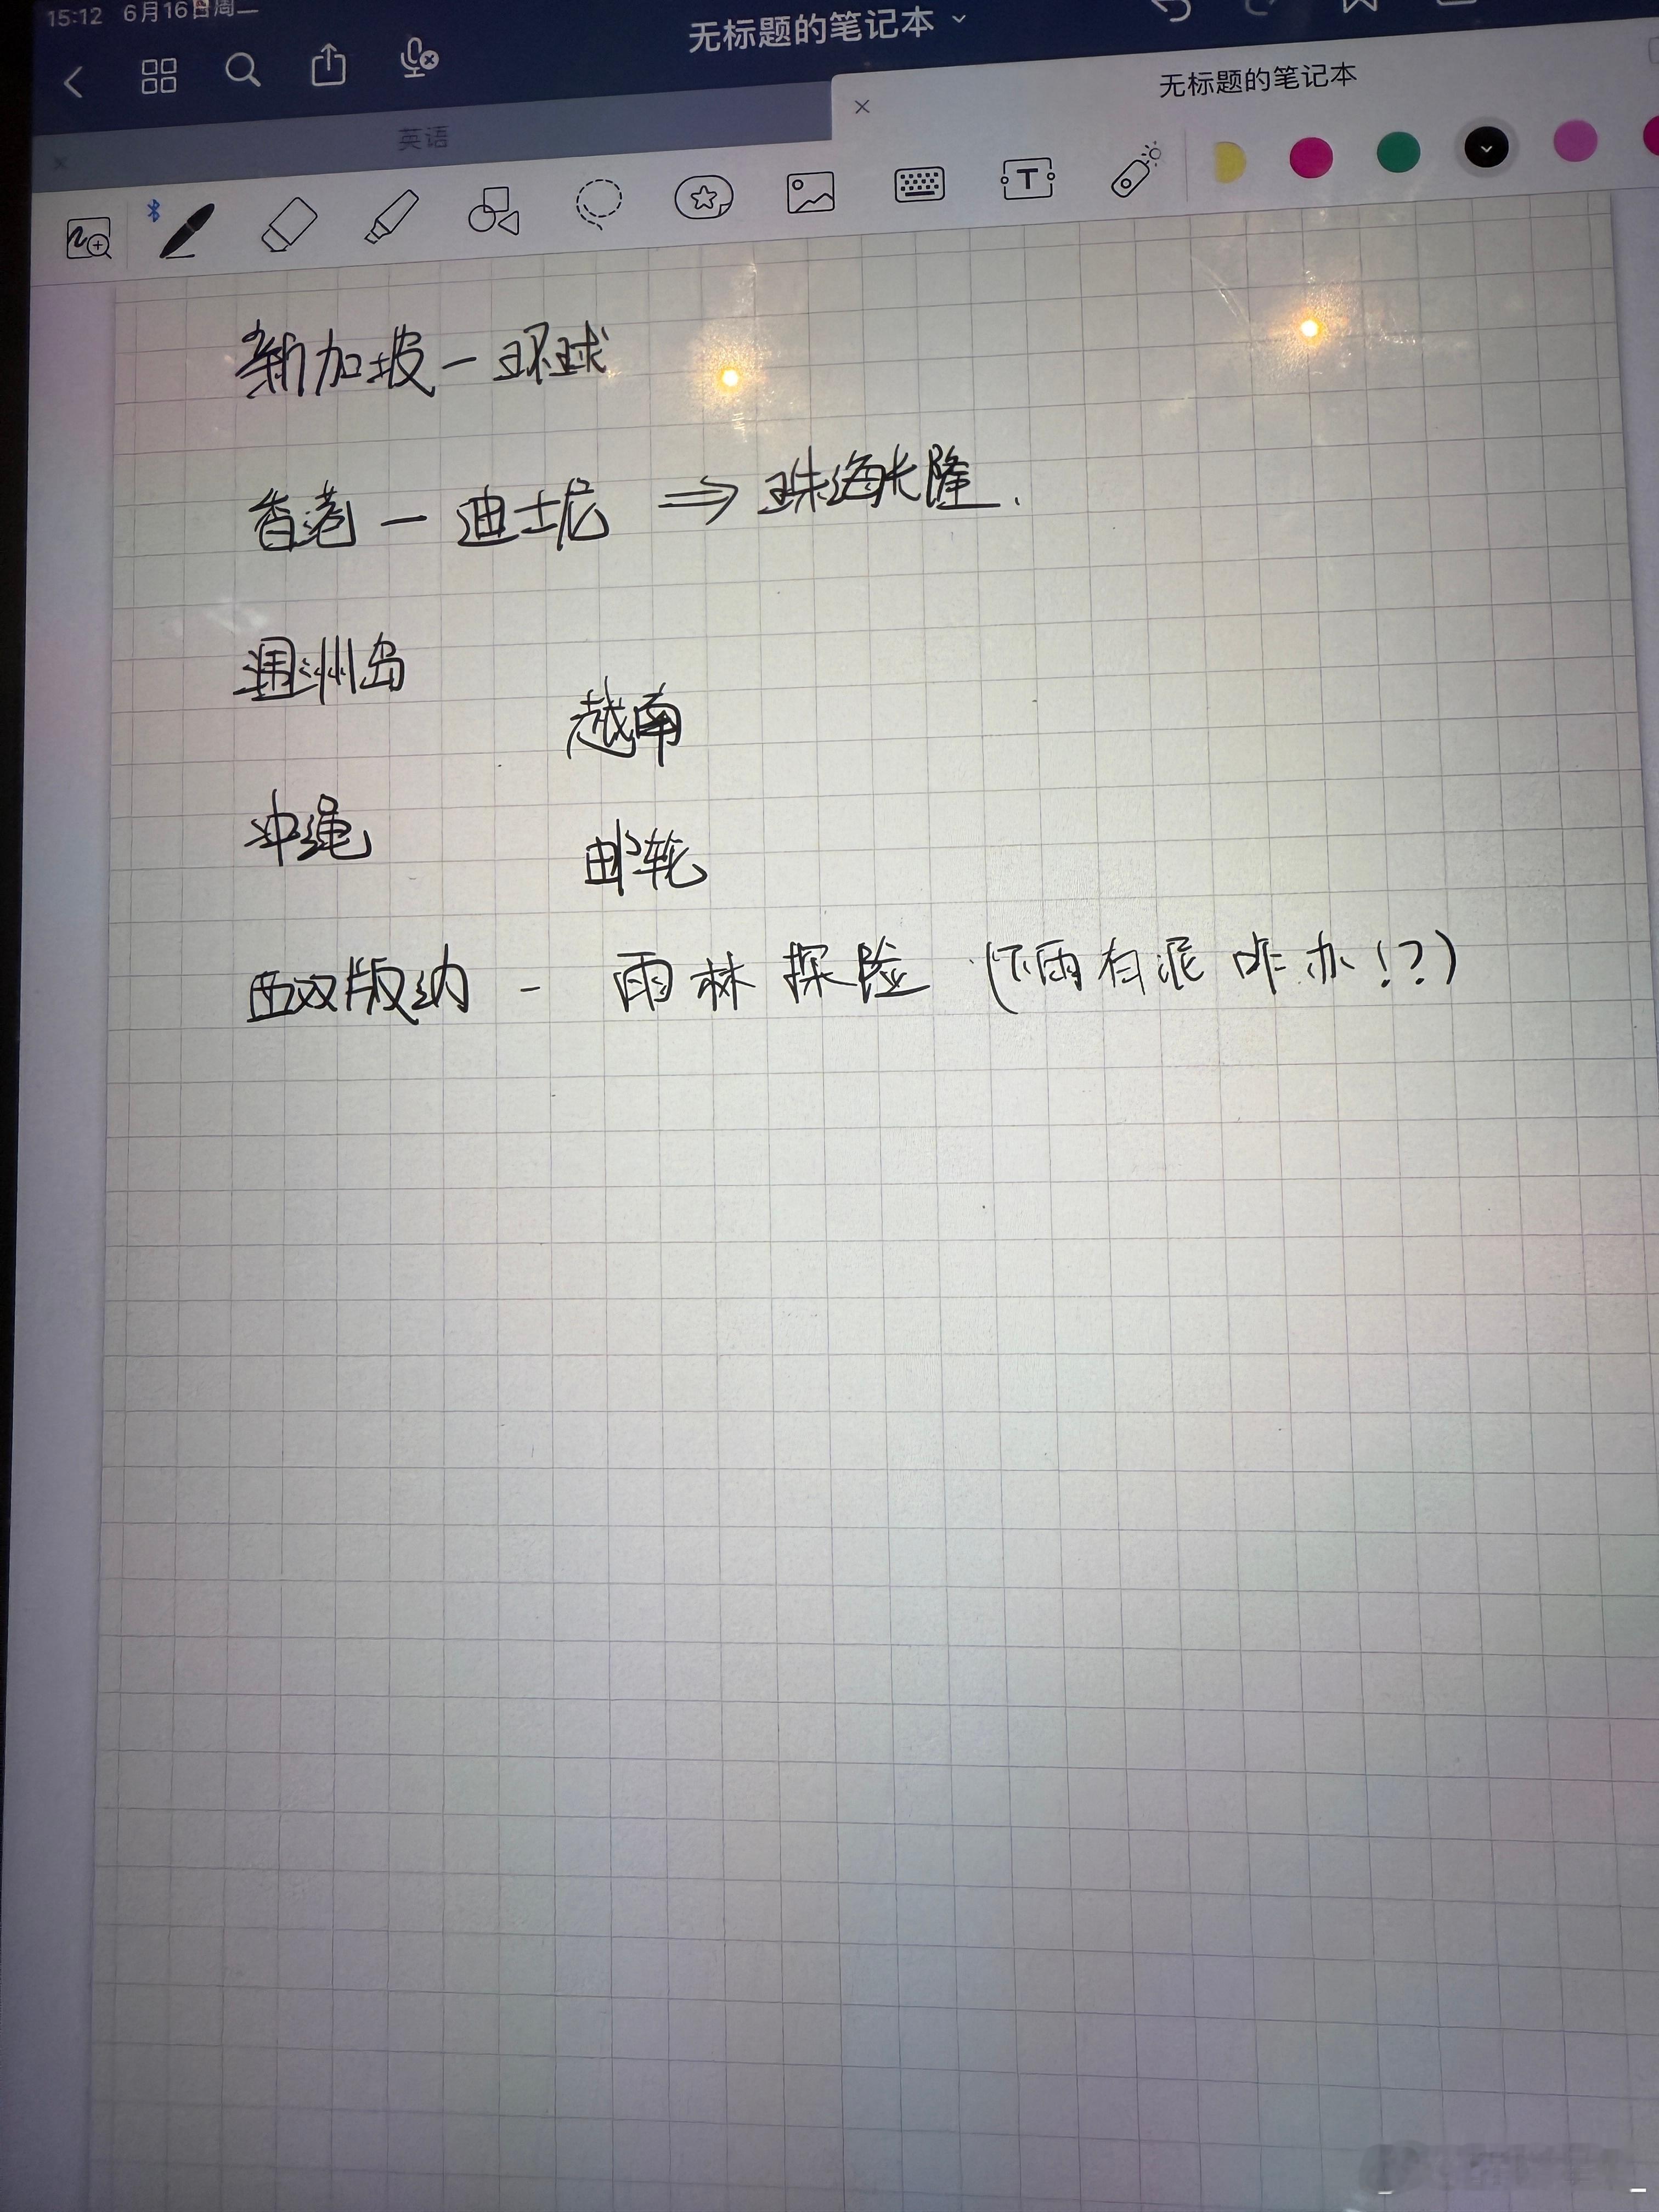 15:12 6月16日周二
无标题的笔记本
无标题的笔记本
英语
T
新加坡－环球
香港－迪士尼 ⇒ 珠海长隆.
涠洲岛
越南
冲绳
邮轮
西双版纳 - 雨林探险 (下雨有泥咋办!?)